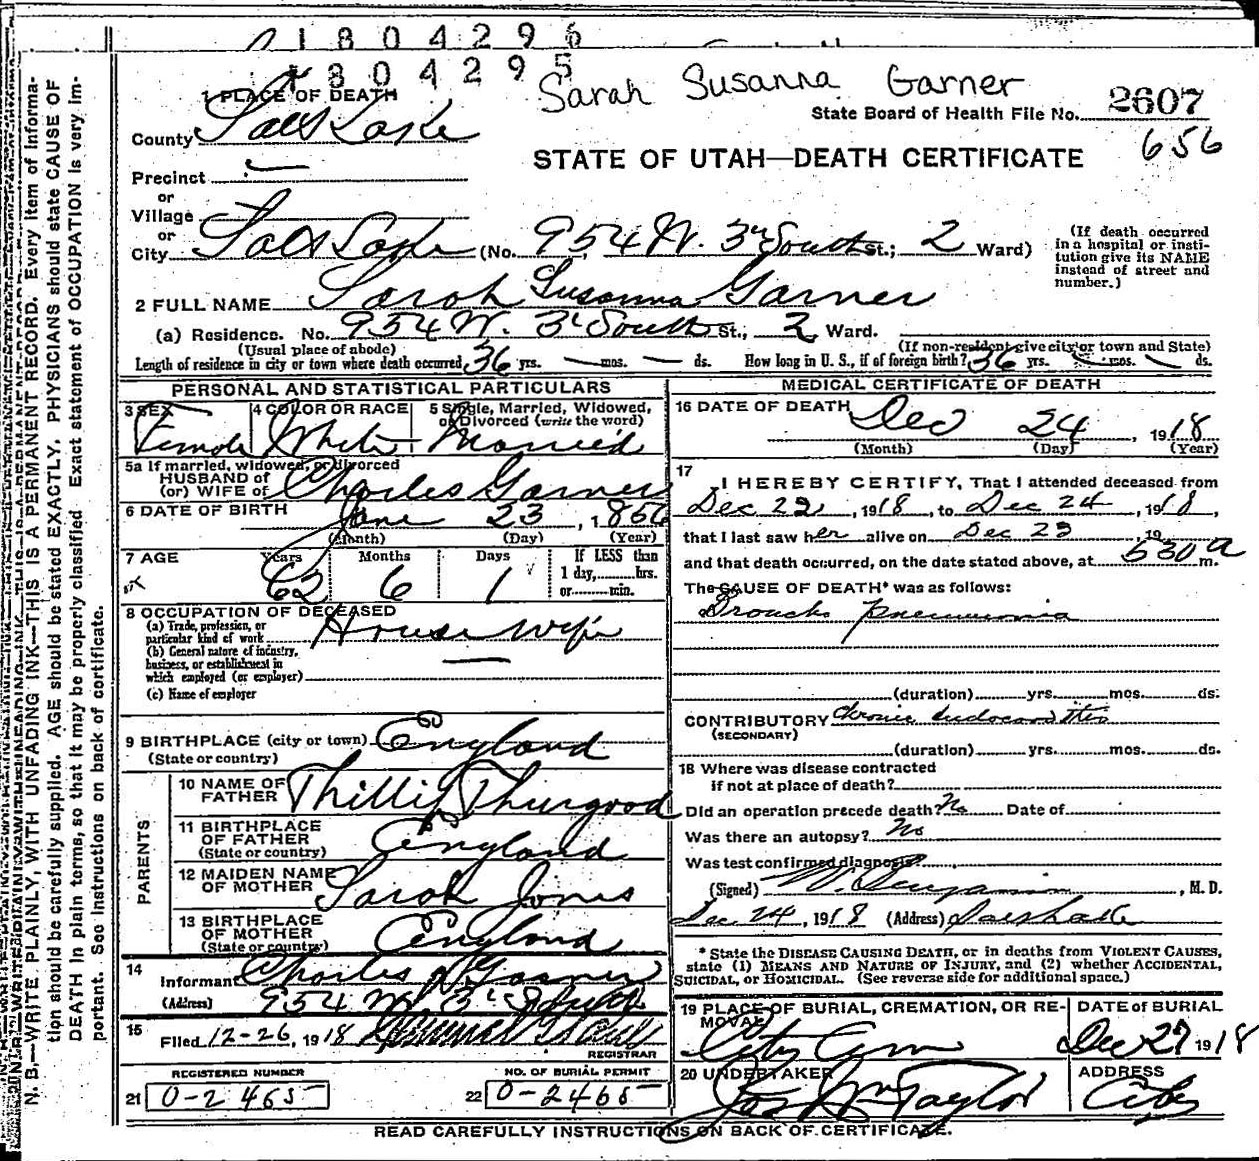 1804296
1804295
Sarah Susanna Garner
1 PLACE OF DEATH
State Board of Health File No. 2607
656
County Salt Lake
STATE OF UTAH—DEATH CERTIFICATE
Precinct
or
Village
or
City Salt Lake (No. 954 W. 3rd South St.; 2 Ward)
(If death occurred in a hospital or insti-
tution give its NAME
instead of street and
number.)
2 FULL NAME Sarah Susanna Garner
(a) Residence. No. 954 W. 3d South St., 2 Ward.
(Usual place of abode)
(If non-resident give city or town and State)
Length of residence in city or town where death occurred 36 yrs. — mos. — ds. How long in U. S., if of foreign birth? 36 yrs. — mos. — ds.
PERSONAL AND STATISTICAL PARTICULARS
3 SEX
Female
4 COLOR OR RACE
White
5 Single, Married, Widowed,
or Divorced (write the word)
Married
5a If married, widowed, or divorced
HUSBAND of
(or) WIFE of Charles Garner
6 DATE OF BIRTH June 23, 1856
(Month) (Day) (Year)
7 AGE
Years Months Days
62 6 1
If LESS than
1 day,........hrs.
or........min.
8 OCCUPATION OF DECEASED
(a) Trade, profession, or
particular kind of work House wife
(b) General nature of industry,
business, or establishment in
which employed (or employer) —
(c) Name of employer
9 BIRTHPLACE (city or town) England
(State or country)
PARENTS
10 NAME OF
FATHER Phillip Thurgood
11 BIRTHPLACE
OF FATHER England
(State or country)
12 MAIDEN NAME
OF MOTHER Sarah Jones
13 BIRTHPLACE
OF MOTHER England
(State or country)
14
Informant Charles Garner
(Address) 954 W 3d South
15
Filed 12-26, 1918
REGISTRAR
REGISTERED NUMBER
21 0-2465
NO. OF BURIAL PERMIT
22 0-2465
MEDICAL CERTIFICATE OF DEATH
16 DATE OF DEATH Dec 24, 1918
(Month) (Day) (Year)
17
I HEREBY CERTIFY, That I attended deceased from
Dec 22, 1918, to Dec 24, 1918,
that I last saw her alive on Dec 23 19
and that death occurred, on the date stated above, at 530 a m.
The CAUSE OF DEATH* was as follows:
Broncho pneumonia
(duration)........yrs........mos........ds.
CONTRIBUTORY Chronic endocarditis
(SECONDARY)
(duration)........yrs........mos........ds.
18 Where was disease contracted
if not at place of death?
Did an operation precede death? No Date of
Was there an autopsy? No
Was test confirmed diagnosis?
(Signed) W. Benjamin, M. D.
Dec 24, 1918 (Address) Salt Lake
* State the DISEASE CAUSING DEATH, or in deaths from VIOLENT CAUSES,
state (1) MEANS AND NATURE OF INJURY, and (2) whether ACCIDENTAL,
SUICIDAL, or HOMICIDAL. (See reverse side for additional space.)
19 PLACE OF BURIAL, CREMATION, OR RE-
MOVAL
City Cem
DATE of BURIAL
Dec 27 1918
20 UNDERTAKER
Jos Wm Taylor
ADDRESS
City
READ CAREFULLY INSTRUCTIONS ON BACK OF CERTIFICATE.
N. B.—WRITE PLAINLY, WITH UNFADING INK—THIS IS A PERMANENT RECORD. Every item of informa-
tion should be carefully supplied. AGE should be stated EXACTLY. PHYSICIANS should state CAUSE OF
DEATH in plain terms, so that it may be properly classified. Exact statement of OCCUPATION is very im-
portant. See instructions on back of certificate.